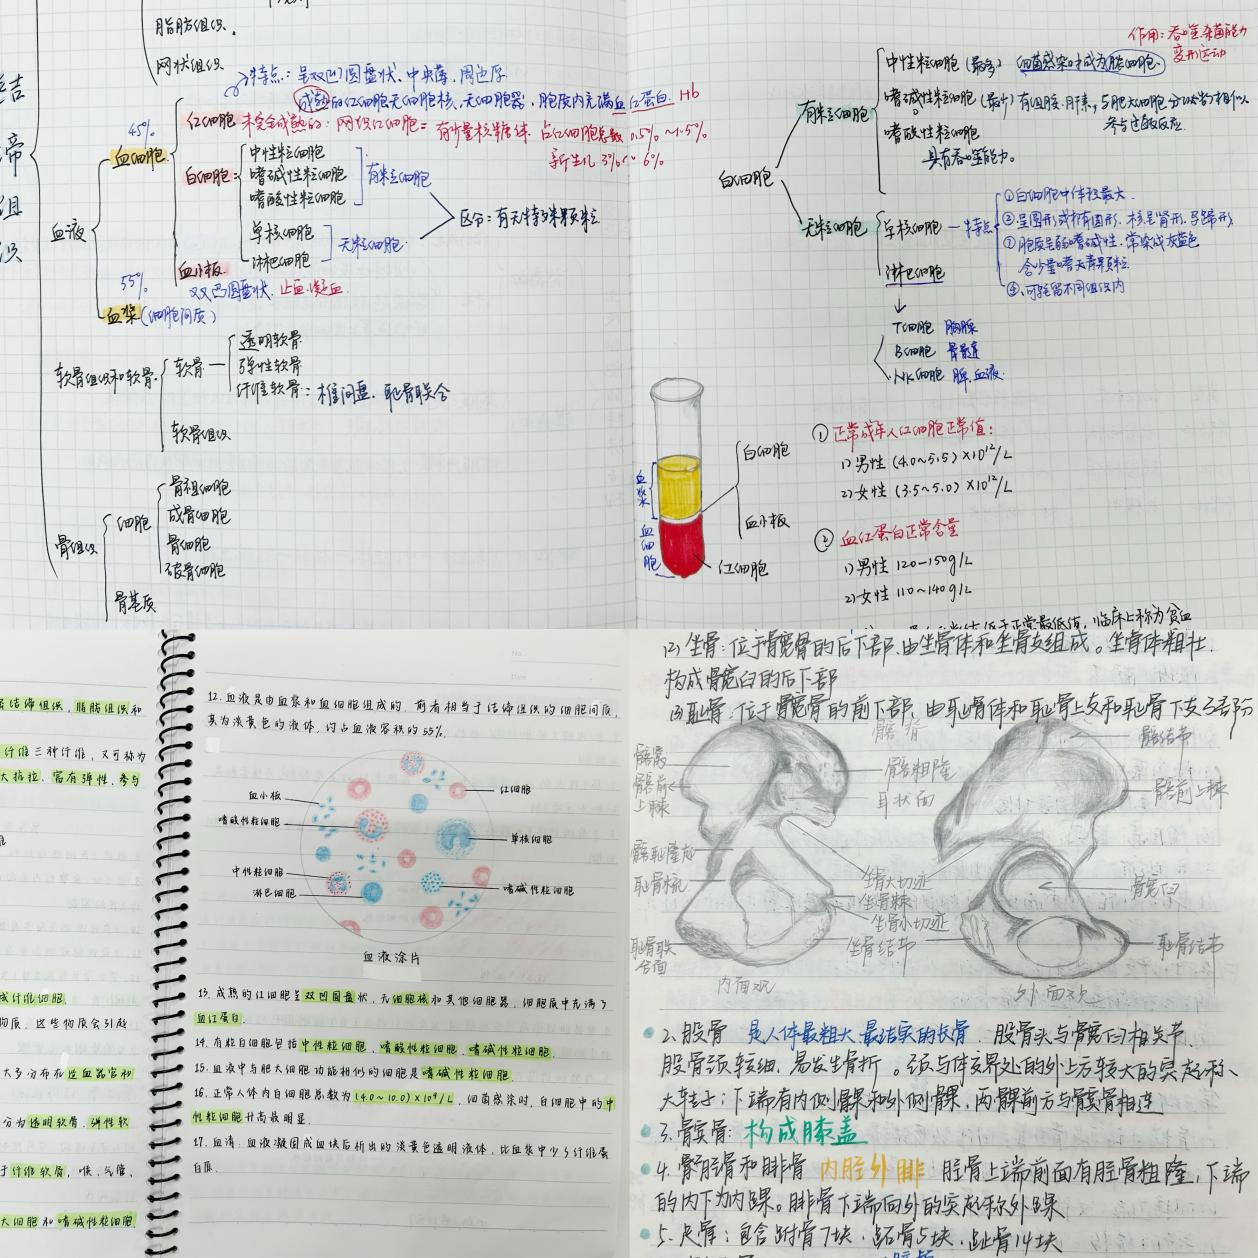 脂肪组织.
网状组织.
结
缔
组
织
特点：呈双凹圆盘状、中央薄、周边厚
成熟的红细胞无细胞核、无细胞器，胞质内充满血红蛋白. Hb
45%
血细胞
红细胞
未完全成熟的：网织红细胞=有少量核糖体，占红细胞总数 0.5%~1.5%
新生儿 3%~6%
白细胞
中性粒细胞
嗜碱性粒细胞
嗜酸性粒细胞
有粒细胞
单核细胞
淋巴细胞
无粒细胞
区分：有无特殊颗粒
血液
血小板
双凸圆盘状. 止血.凝血
55%
血浆(细胞间质)
软骨组织和软骨
软骨
透明软骨
弹性软骨
纤维软骨：椎间盘、耻骨联合
软骨组织
骨组织
细胞
骨祖细胞
成骨细胞
骨细胞
破骨细胞
骨基质
作用：吞噬杀菌能力
变形运动
白细胞
有粒细胞
中性粒细胞(最多) 细菌感染时成为脓细胞.
嗜碱性粒细胞(最少)有组胺.肝素,与肥大细胞分泌
参与过敏反应
嗜酸性粒细胞
具有吞噬能力。
无粒细胞
单核细胞—特点
①白细胞中体积最大
②呈圆形或椭圆形.核呈肾形.马蹄形
③胞质呈弱嗜碱性,常染成灰蓝色
含少量嗜天青颗粒
④.可
不同组织内
淋巴细胞
T细胞 胸腺
B细胞 骨髓
NK细胞 脾.血液
血浆
血细胞
白细胞
血小板
红细胞
①正常成年人红细胞正常值：
1)男性(4.0~5.5)×10¹²/L
2)女性(3.5~5.0)×10¹²/L
②血红蛋白正常含量
1)男性 120-150g/L
2)女性 110~140g/L
低于正常最低值，临床上称为贫血
结缔组织，脂肪组织和
纤维三种纤维，又可称为
大抗拉、富有弹性，参与
成纤维细胞
物质，这些物质会引起
大多分布在
分为透明软骨、弹性软
于纤维软骨，喉、气管、
大细胞和嗜碱性粒细胞
No.
Date
12.血液是由血浆和血细胞组成的，前者相当于结缔组织的细胞间质，
其为淡黄色的液体，约占血液容积的55%.
血小板
红细胞
嗜酸性粒细胞
单核细胞
中性粒细胞
淋巴细胞
嗜碱性粒细胞
血液涂片
13.成熟的红细胞呈双凹圆盘状，无细胞核和其他细胞器，细胞质中充满了
血红蛋白.
14.有粒白细胞包括中性粒细胞、嗜酸性粒细胞、嗜碱性粒细胞.
15.血液中与肥大细胞功能相似的细胞是嗜碱性粒细胞.
16.正常人体内白细胞总数为(4.0~10.0)×10⁹/L，细菌感染时，白细胞中的中
性粒细胞升高最明显.
17.血清：血液凝固成血块后析出的淡黄色透明液体，比血浆中少了纤维蛋
白原.
(2)坐骨：位于髋骨的后下部.由坐骨体和坐骨支组成。坐骨体粗壮，
构成髋臼的后下部
(3)耻骨：位于髋骨的前下部，由耻骨体和耻骨上支和耻骨下支3部分
髂骨
髂窝
髂粗隆
髂结节
髂前
上棘
耳状面
髂前上棘
髂耻隆起
坐骨大切迹
耻骨梳
坐骨棘
髋臼
坐骨小切迹
耻骨联
合面
坐骨结节
耻骨结节
内面观
外面观
2.股骨 是人体最粗大最结实的长骨，股骨头与髋臼相关节
股骨颈较细，易发生骨折。颈与体交界处的外上方较大的突起称、
大转子；下端有内侧髁和外侧髁，两髁前方与髌骨相连
3.髌骨：构成膝盖
4.胫骨和腓骨 内胫外腓 胫骨上端前面有胫骨粗隆，下端
的内下为内踝。腓骨下端向外的突起称外踝
5.足骨：包含跗骨7块，跖骨5块，趾骨14块